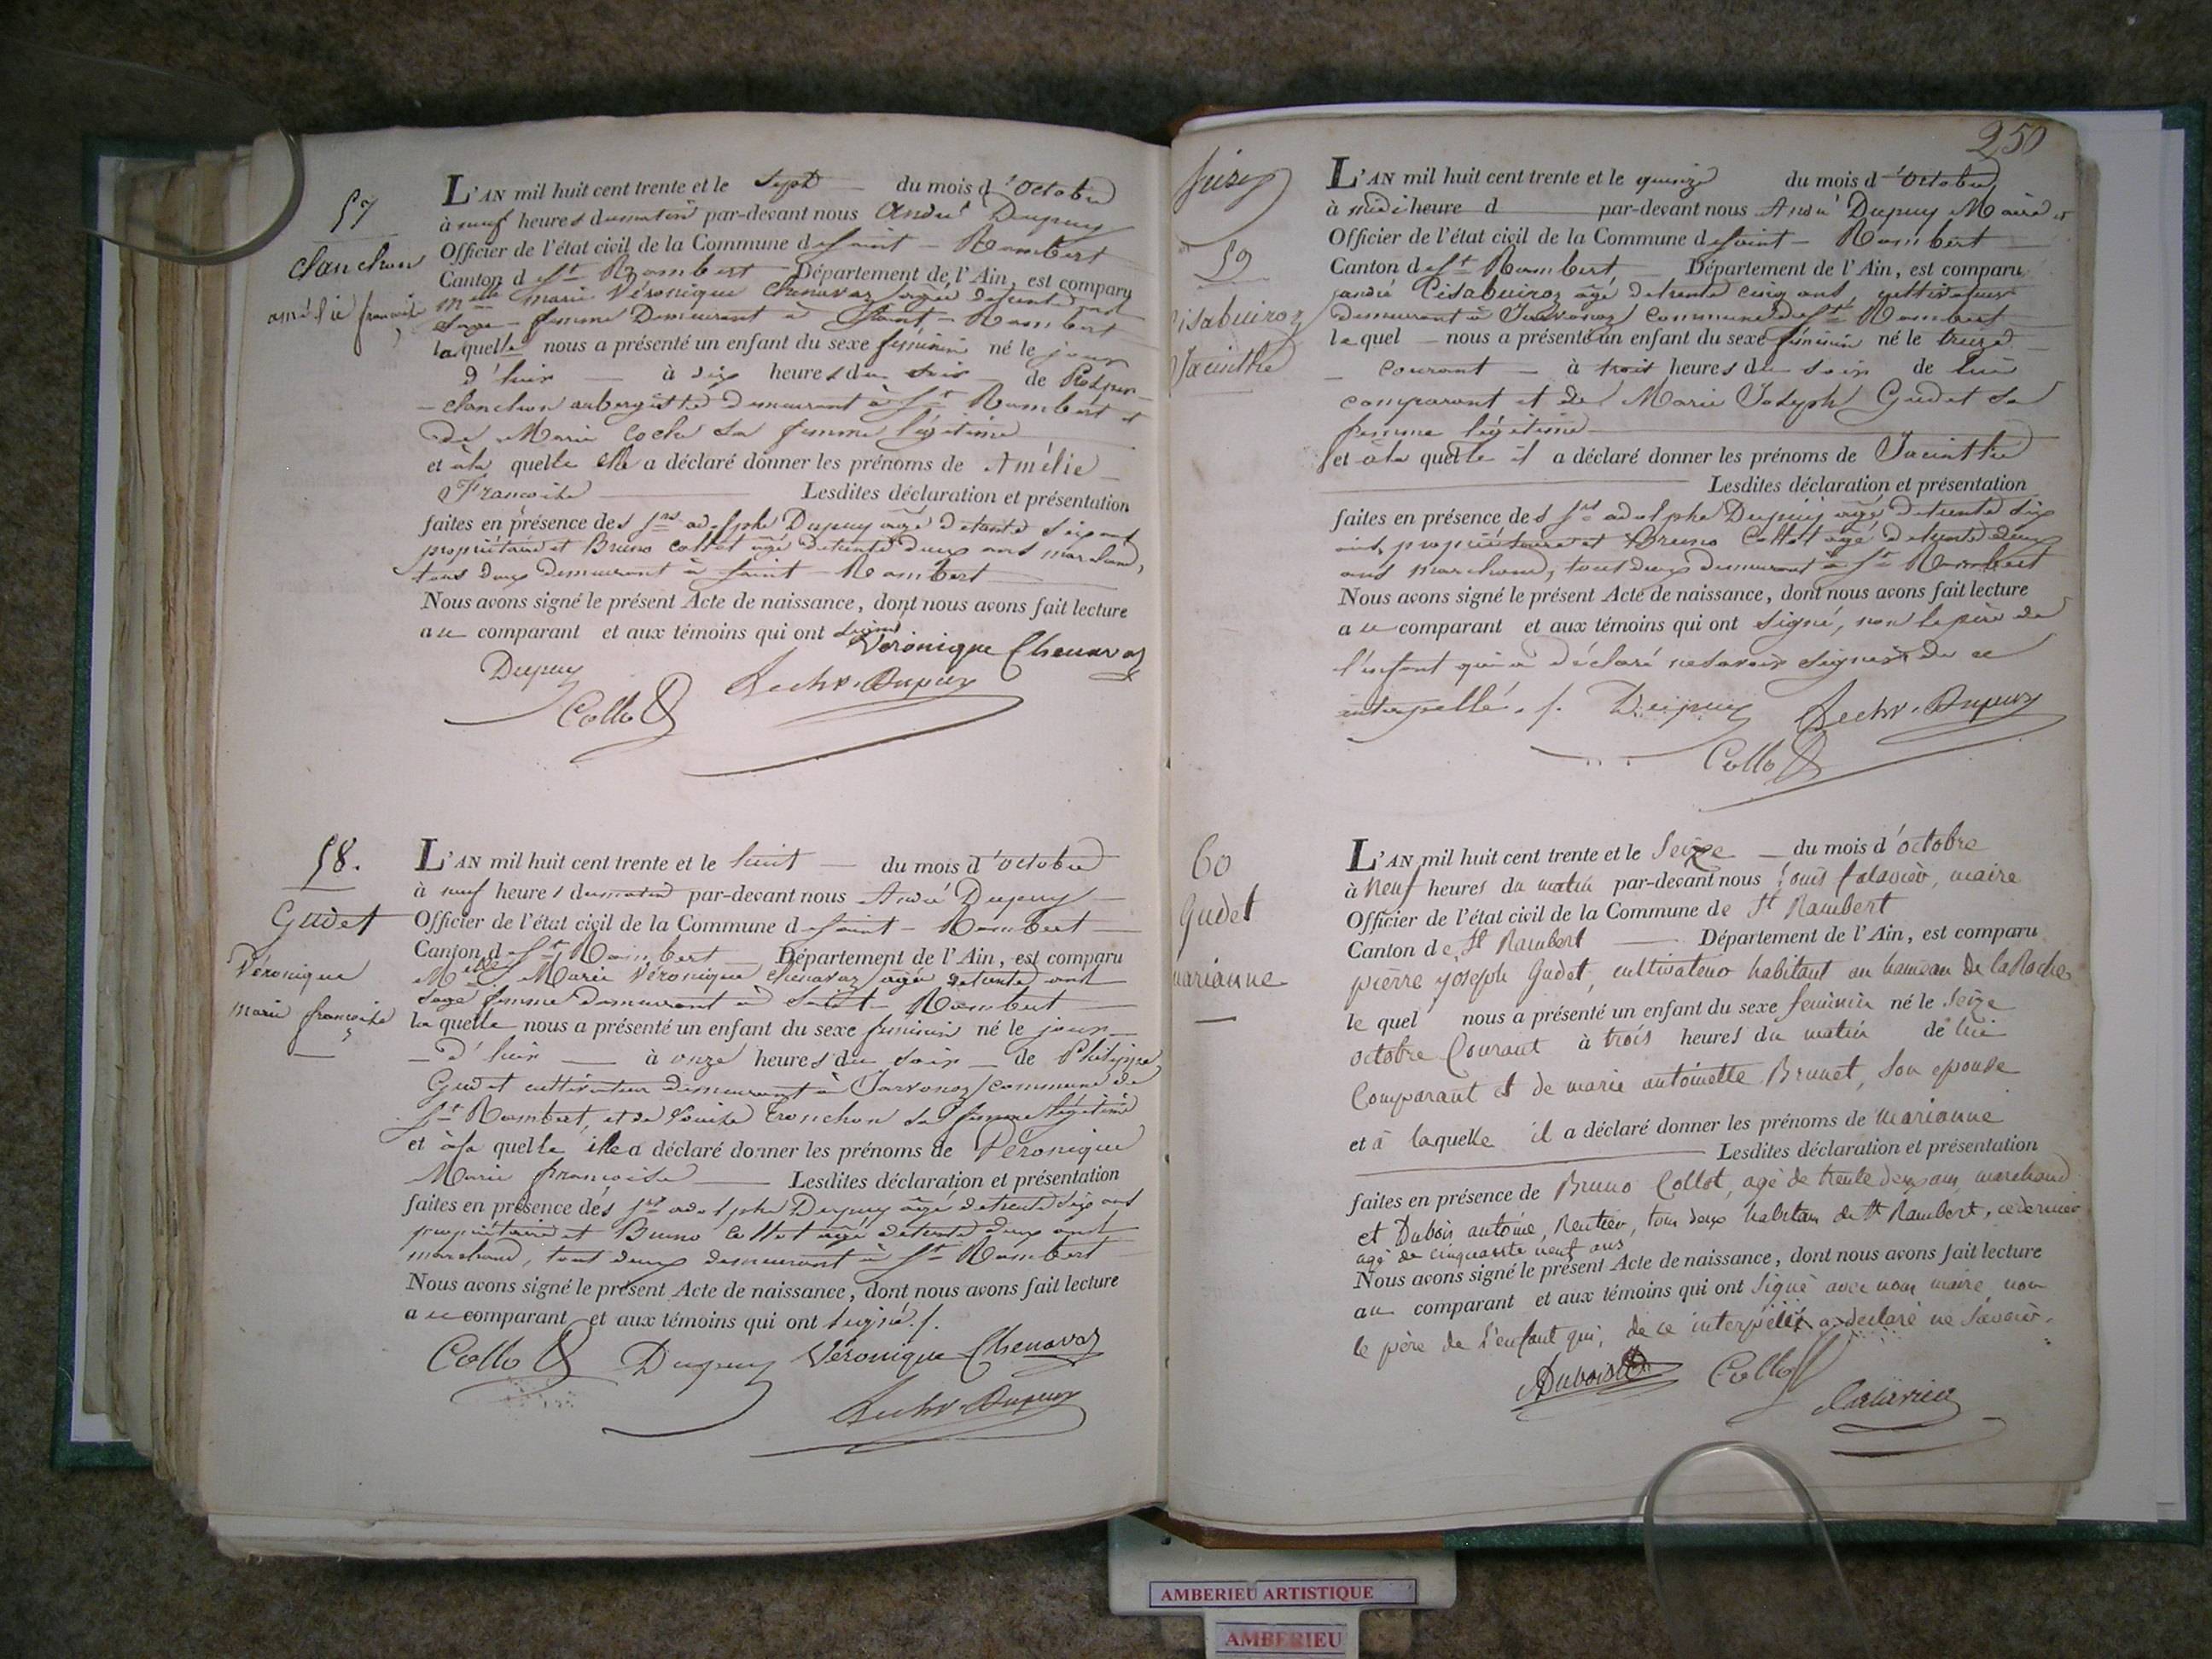 57
clanchon
amélie francoise
L'AN mil huit cent trente et le sept du mois d'octobre
à neuf heures du matin par-devant nous André Dupuy
Officier de l'état civil de la Commune de Saint-Rambert
Canton de St Rambert Département de l'Ain, est comparu
Marie Véronique Chenavaz agée de trente ans
Sage-femme Demeurant à Saint-Rambert
laquelle nous a présenté un enfant du sexe féminin né le jour
d'hier à dix heures du soir de Prosper
clanchon aubergiste demeurant à St Rambert et
de Marie Coche sa femme légitime
et à la quelle elle a déclaré donner les prénoms de Amélie
Francoise Lesdites déclaration et présentation
faites en présence des Srs adolphe Dupuy agé de trente six ans
propriétaire et Bruno Collot agé de trente deux ans marchand,
tous deux demeurant à Saint-Rambert
Nous avons signé le présent Acte de naissance, dont nous avons fait lecture
au comparant et aux témoins qui ont signé
Véronique Chenavaz
Dupuy
Collot
58.
Gudet
Véronique
marie francoise
L'AN mil huit cent trente et le huit du mois d'octobre
à neuf heures du matin par-devant nous André Dupuy
Officier de l'état civil de la Commune de Saint-Rambert
Canton de St Rambert Département de l'Ain, est comparu
Marie Véronique Chenavaz agée de trente ans
Sage femme demeurant à Saint-Rambert
la quelle nous a présenté un enfant du sexe feminin né le jour
d'hier à onze heures du soir de Philippe
Gudet cultivateur demeurant à Javornoz commune de
St Rambert, et de Louise Tronchon sa femme légitime
et à la quelle elle a déclaré donner les prénoms de Véronique
Marie françoise Lesdites déclaration et présentation
faites en présence des Srs adolphe Dupuy âgé de trente six ans
propriétaire et Bruno Collot agé de trente deux ans
marchand, tout deux demeurant à St Rambert
Nous avons signé le présent Acte de naissance, dont nous avons fait lecture
au comparant et aux témoins qui ont signé./.
Collot Dupuy Véronique Chenavaz
250
59
Pisabuiroz
Jacinthe
L'AN mil huit cent trente et le quinze du mois d'octobre
à midi heure d par-devant nous André Dupuy Maire et
Officier de l'état civil de la Commune de Saint-Rambert
Canton de St Rambert Département de l'Ain, est comparu
andré Pisabuiroz âgé de trente cinq ans cultivateur
demeurant à Javornoz commune de St Rambert
lequel nous a présenté un enfant du sexe féminin né le treize
courant à trois heures du soir de lui
comparant et de Marie Joseph Gudet sa
femme légitime
et à la quelle il a déclaré donner les prénoms de Jacinthe
Lesdites déclaration et présentation
faites en présence des Srs adolphe Dupuy agé de trente six
ans, propriétaire et Bruno Collot agé de trente deux
ans marchand, tout deux demeurant à St Rambert
Nous avons signé le présent Acte de naissance, dont nous avons fait lecture
au comparant et aux témoins qui ont signé, non le père de
l'enfant qui a déclaré ne savoir signer de ce
interpellé./. Dupuy
Collot
60
Gudet
marianne
L'AN mil huit cent trente et le Seize du mois d'octobre
à Neuf heures du matin par-devant nous Louis falavier, maire
Officier de l'état civil de la Commune de St Rambert
Canton de St Rambert Département de l'Ain, est comparu
pierre joseph Gudet, cultivateur habitant au hameau de la Roche
le quel nous a présenté un enfant du sexe feminin né le Seize
octobre Courant à trois heures du matin de lui
Comparant et de marie antoinette Brunet, son epouse
et à laquelle il a déclaré donner les prénoms de marianne
Lesdites déclaration et présentation
faites en présence de Bruno Collot, agé de trente deux ans, marchand
et Dubois antoine, Rentier, tous deux habitans de St Rambert, ce dernier
agé de cinquante neuf ans
Nous avons signé le présent Acte de naissance, dont nous avons fait lecture
au comparant et aux témoins qui ont signé avec nous maire, non
le père de l'enfant qui, de ce interpellé a declaré ne savoir.
Dubois Collot
AMBERIEU ARTISTIQUE
AMBERIEU